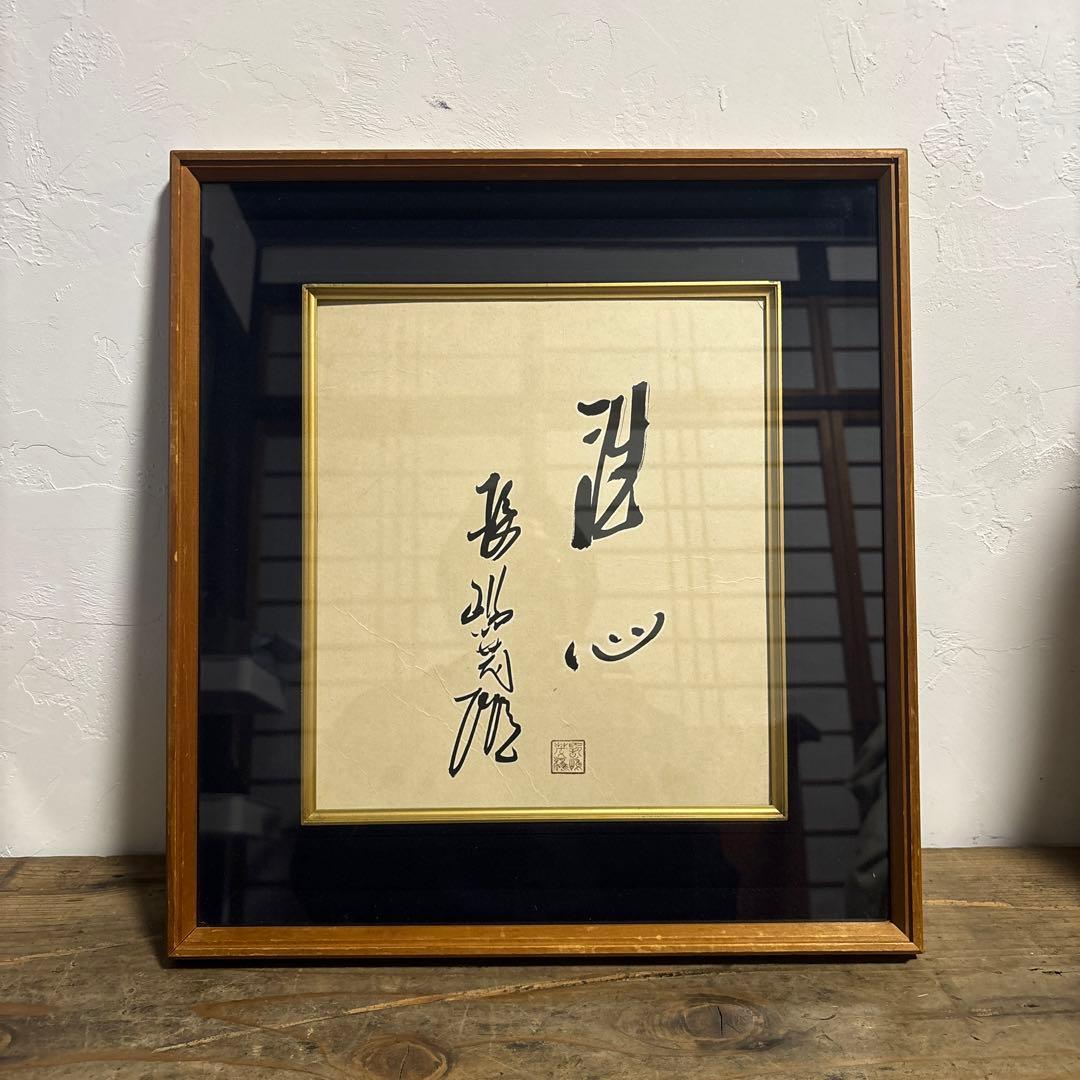 洗心
長嶋茂雄